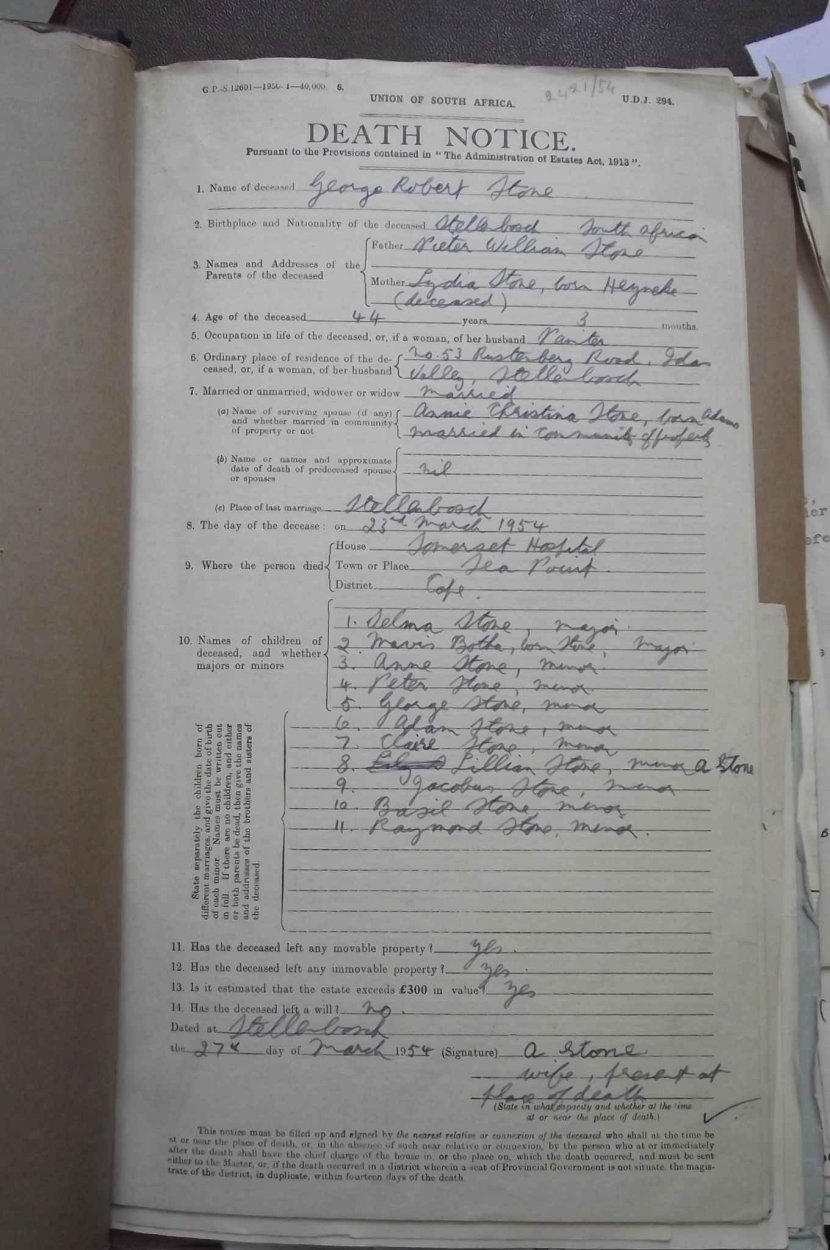 G.P.-S.12601—1950-1—40,000. S.
2421/54
UNION OF SOUTH AFRICA.
U.D.J. 294.
DEATH NOTICE.
Pursuant to the Provisions contained in "The Administration of Estates Act, 1913".
1. Name of deceased George Robert Stone
2. Birthplace and Nationality of the deceased Stellenbosch South African
3. Names and Addresses of the Parents of the deceased
Father Pieter William Stone
Mother Lydia Stone, born Heyneke
(deceased)
4. Age of the deceased 44 years 3 months.
5. Occupation in life of the deceased, or, if a woman, of her husband Painter
6. Ordinary place of residence of the de- No. 53 Rustenberg Road, Idas
ceased, or, if a woman, of her husband Valley, Stellenbosch
7. Married or unmarried, widower or widow married
(a) Name of surviving spouse (if any) Annie Christina Stone, born Adams
and whether married in community married in community of property
of property or not
(b) Name or names and approximate
date of death of predeceased spouse nil
or spouses
(c) Place of last marriage Stellenbosch
8. The day of the decease: on 23rd March 1954
9. Where the person died
House Somerset Hospital
Town or Place Sea Point.
District Cape.
10. Names of children of
deceased, and whether
majors or minors
1. Selma Stone, major
2. Mavis Botha, born Stone, major
3. Anne Stone, minor
4. Peter Stone, minor
5. George Stone, minor
6. Adam Stone, minor
7. Claire Stone, minor
8. Lillian Stone, minor A Stone
9. Jacobus Stone, minor
10. Basil Stone, minor
11. Raymond Stone, minor.
State separately the children born of
different marriages, and give the date of birth
of each minor. Names must be written out
in full. If there are no children, and either
or both parents be dead, then give the names
and addresses of the brothers and sisters of
the deceased.
11. Has the deceased left any movable property? yes.
12. Has the deceased left any immovable property? yes.
13. Is it estimated that the estate exceeds £300 in value? yes
14. Has the deceased left a will? no.
Dated at Stellenbosch
the 27th day of March 1954 (Signature) A Stone
wife, present at
place of death
(State in what capacity and whether at the time
at or near the place of death.)
This notice must be filled up and signed by the nearest relative or connexion of the deceased who shall at the time be
at or near the place of death, or, in the absence of such near relative or connexion, by the person who at or immediately
after the death shall have the chief charge of the house in, or the place on, which the death occurred, and must be sent
either to the Master, or, if the death occurred in a district wherein a seat of Provincial Government is not situate, the magis-
trate of the district, in duplicate, within fourteen days of the death.